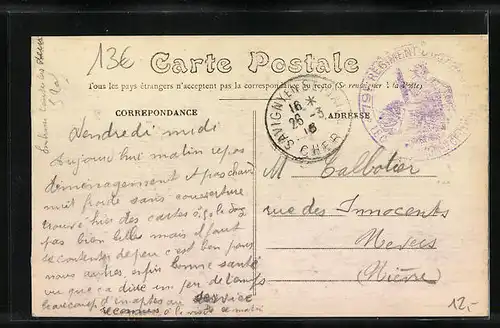 13€
Carte Postale
Tous les pays étrangers n'acceptent pas la correspondance au recto (Se renseigner à la Poste)
CORRESPONDANCE
ADRESSE
SAVIGNY-EN-
16 *
28 - 3
16
CHER
79 REGIMENT D'
Vendredi midi
Aujourd'hui matin repos
déménagement et pas chaud
nuit froide sans couverture
trouvé hier des cartes
pas bien belles mais il faut
se contenter de peu c'est bon pour
nous autres enfin bonne santé
vu que ça dure un peu de temps
beaucoup d'inaptes au service
à la visite ce matin
M Talbotier
rue des Innocents
Nevers
Nièvre
12,-